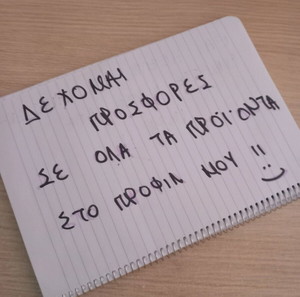 ΔΕΧΟΜΑΙ
ΠΡΟΣΦΟΡΕΣ
ΣΕ ΟΛΑ ΤΑ ΠΡΟΪΟΝΤΑ
ΣΤΟ ΠΡΟΦΙΛ ΜΟΥ !!